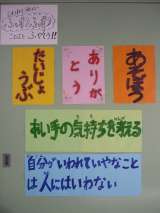 だいじょうぶ
ありがとう
あそぼう
相い手の気持ちを考える
自分がいわれていやなこと
は人にはいわない